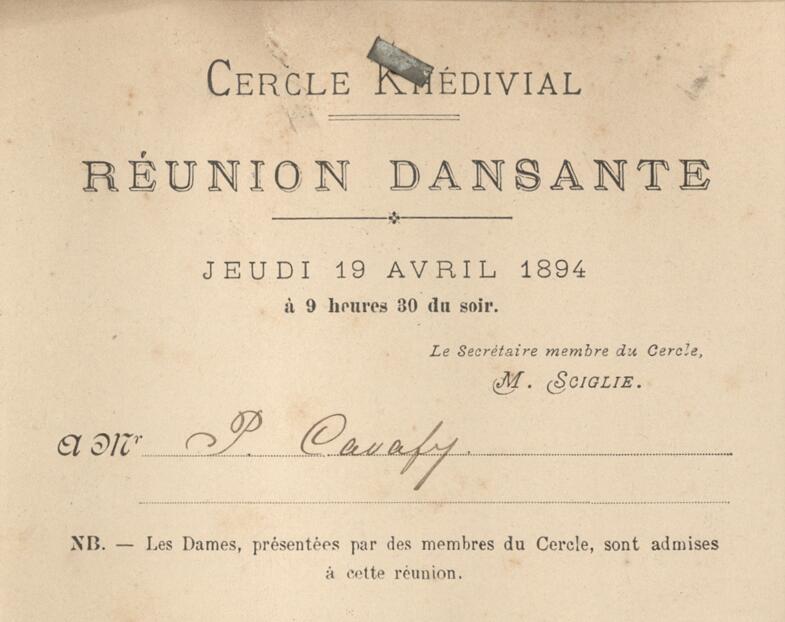 CERCLE KHÉDIVIAL
RÉUNION DANSANTE
JEUDI 19 AVRIL 1894
à 9 heures 30 du soir.
Le Secrétaire membre du Cercle,
M. SCIGLIE.
A Mr P. Cavafy.
NB. — Les Dames, présentées par des membres du Cercle, sont admises
à cette réunion.